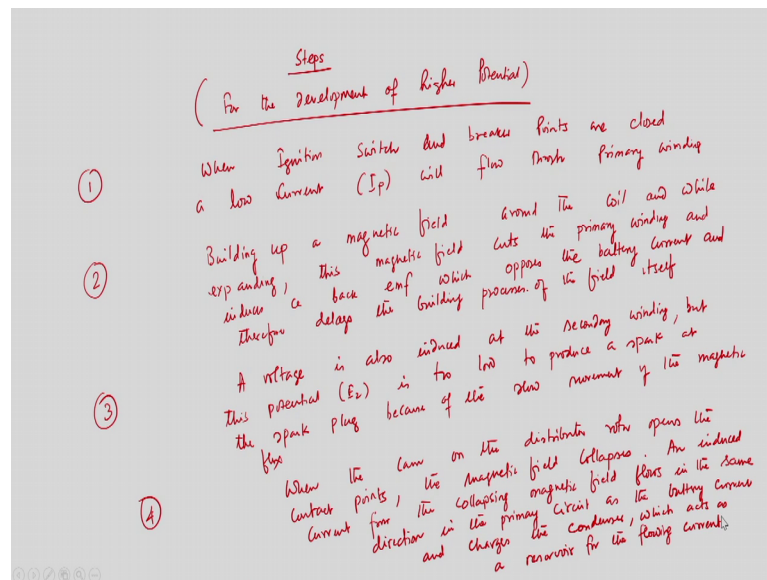 Steps
(For the Development of higher Potential)
① When Ignition Switch and breaker Points are closed
a low Current (Ip) will flow through Primary winding
② Building up a magnetic field around the coil and while
expanding, this magnetic field cuts the primary winding and
induces a back emf which opposes the battery current and
therefore delays the building process of the field itself
③ A voltage is also induced at the secondary winding, but
this potential (E2) is too low to produce a spark at
the spark plug because of the slow movement of the magnetic
flux
④ When the cam on the distributor rotor opens the
contact points, the magnetic field collapses. An induced
current from the collapsing magnetic field flows in the same
direction in the primary circuit as the battery current
and charges the condenser, which acts as
a reservoir for the flowing current.